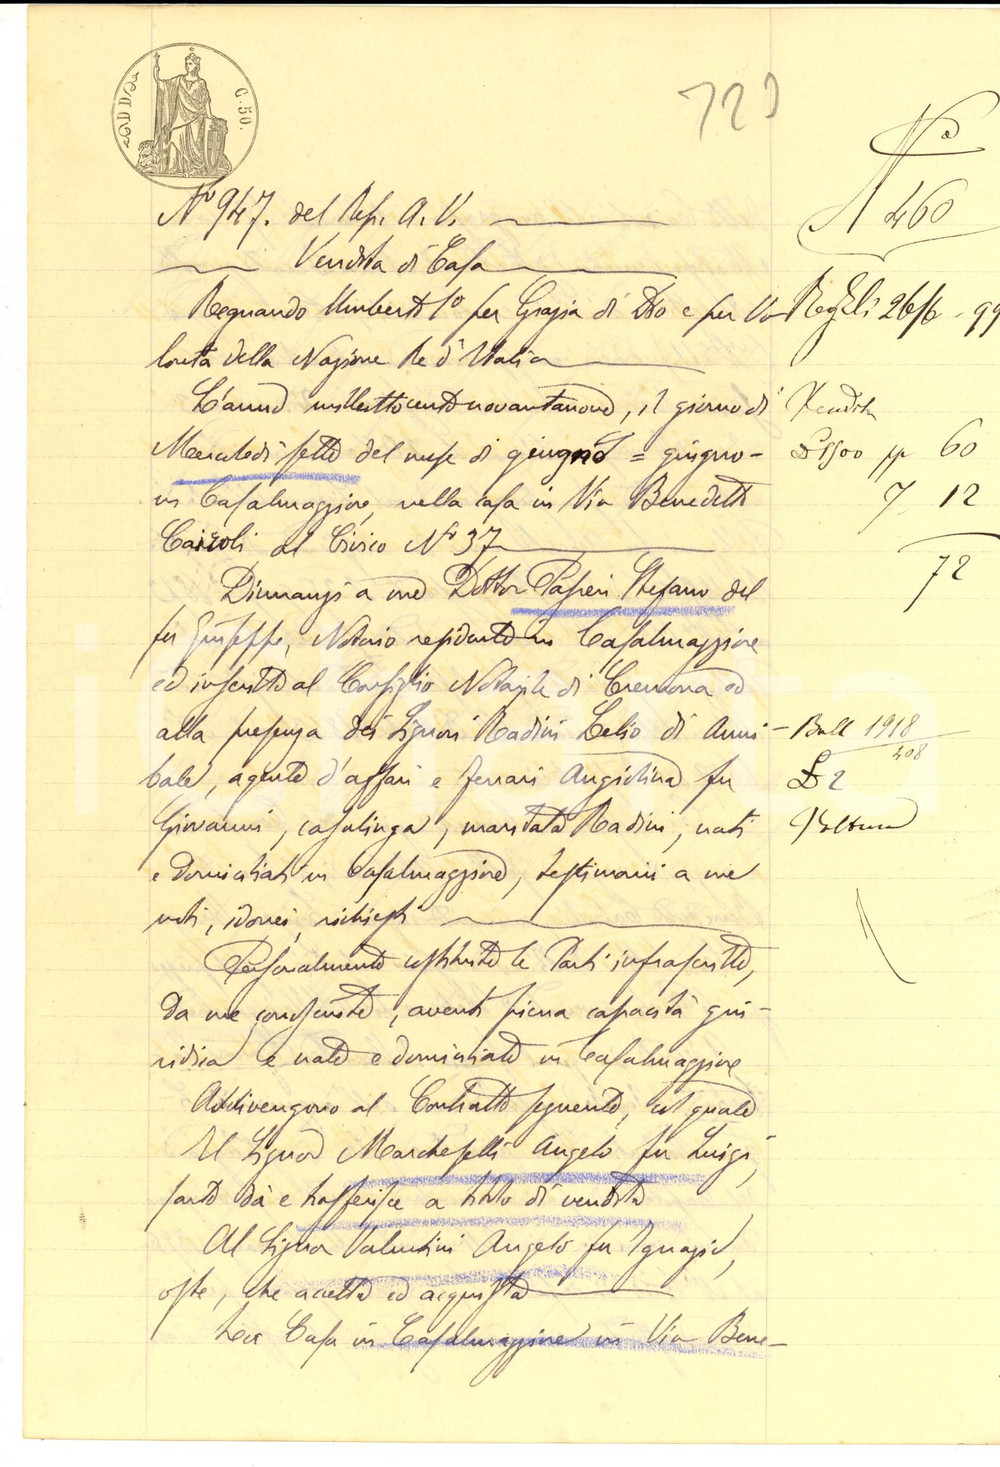 C. 50.
720
N° 460
N° 947. del Rep. A. V.
Vendita di Casa
Regnando Umberto I° per Grazia di Dio e per Vo-
lontà della Nazione Re d'Italia
L'anno milleottocentonovantanove, il giorno di
Mercoledì sette del mese di giugno = giugno -
in Casalmaggiore, nella casa in Via Benedetto
Cairoli al Civico N° 37
Dinnanzi a me Dottor Stefano del
fu Giuseppe, Notaio residente in Casalmaggiore
ed inscritto al Consiglio Notarile di Cremona ed
alla presenza dei Signori Radini Lelio di Anni-
bale, agente d'affari e Ferrari Angiolina fu
Giovanni, casalinga, maritata Radini, nati
e domiciliati in Casalmaggiore, testimoni a me
noti, idonei, richiesti
Personalmente costituite le Parti infrascritte,
da me conosciute, aventi piena capacità giu-
ridica e nate e domiciliate in Casalmaggiore
Addivengono al Contratto seguente, col quale
Il Signor Marcheselli Angelo fu Luigi,
sarto dà e trasferisce a titolo di vendita
Al Signor Valentini Angelo fu Ignazio,
oste, che accetta ed acquista
La Casa in Casalmaggiore in Via Bene-
26/6 - 99
Vendita
L 1500 60
7 12
72
Boll 1918
408
L 2
Voltura